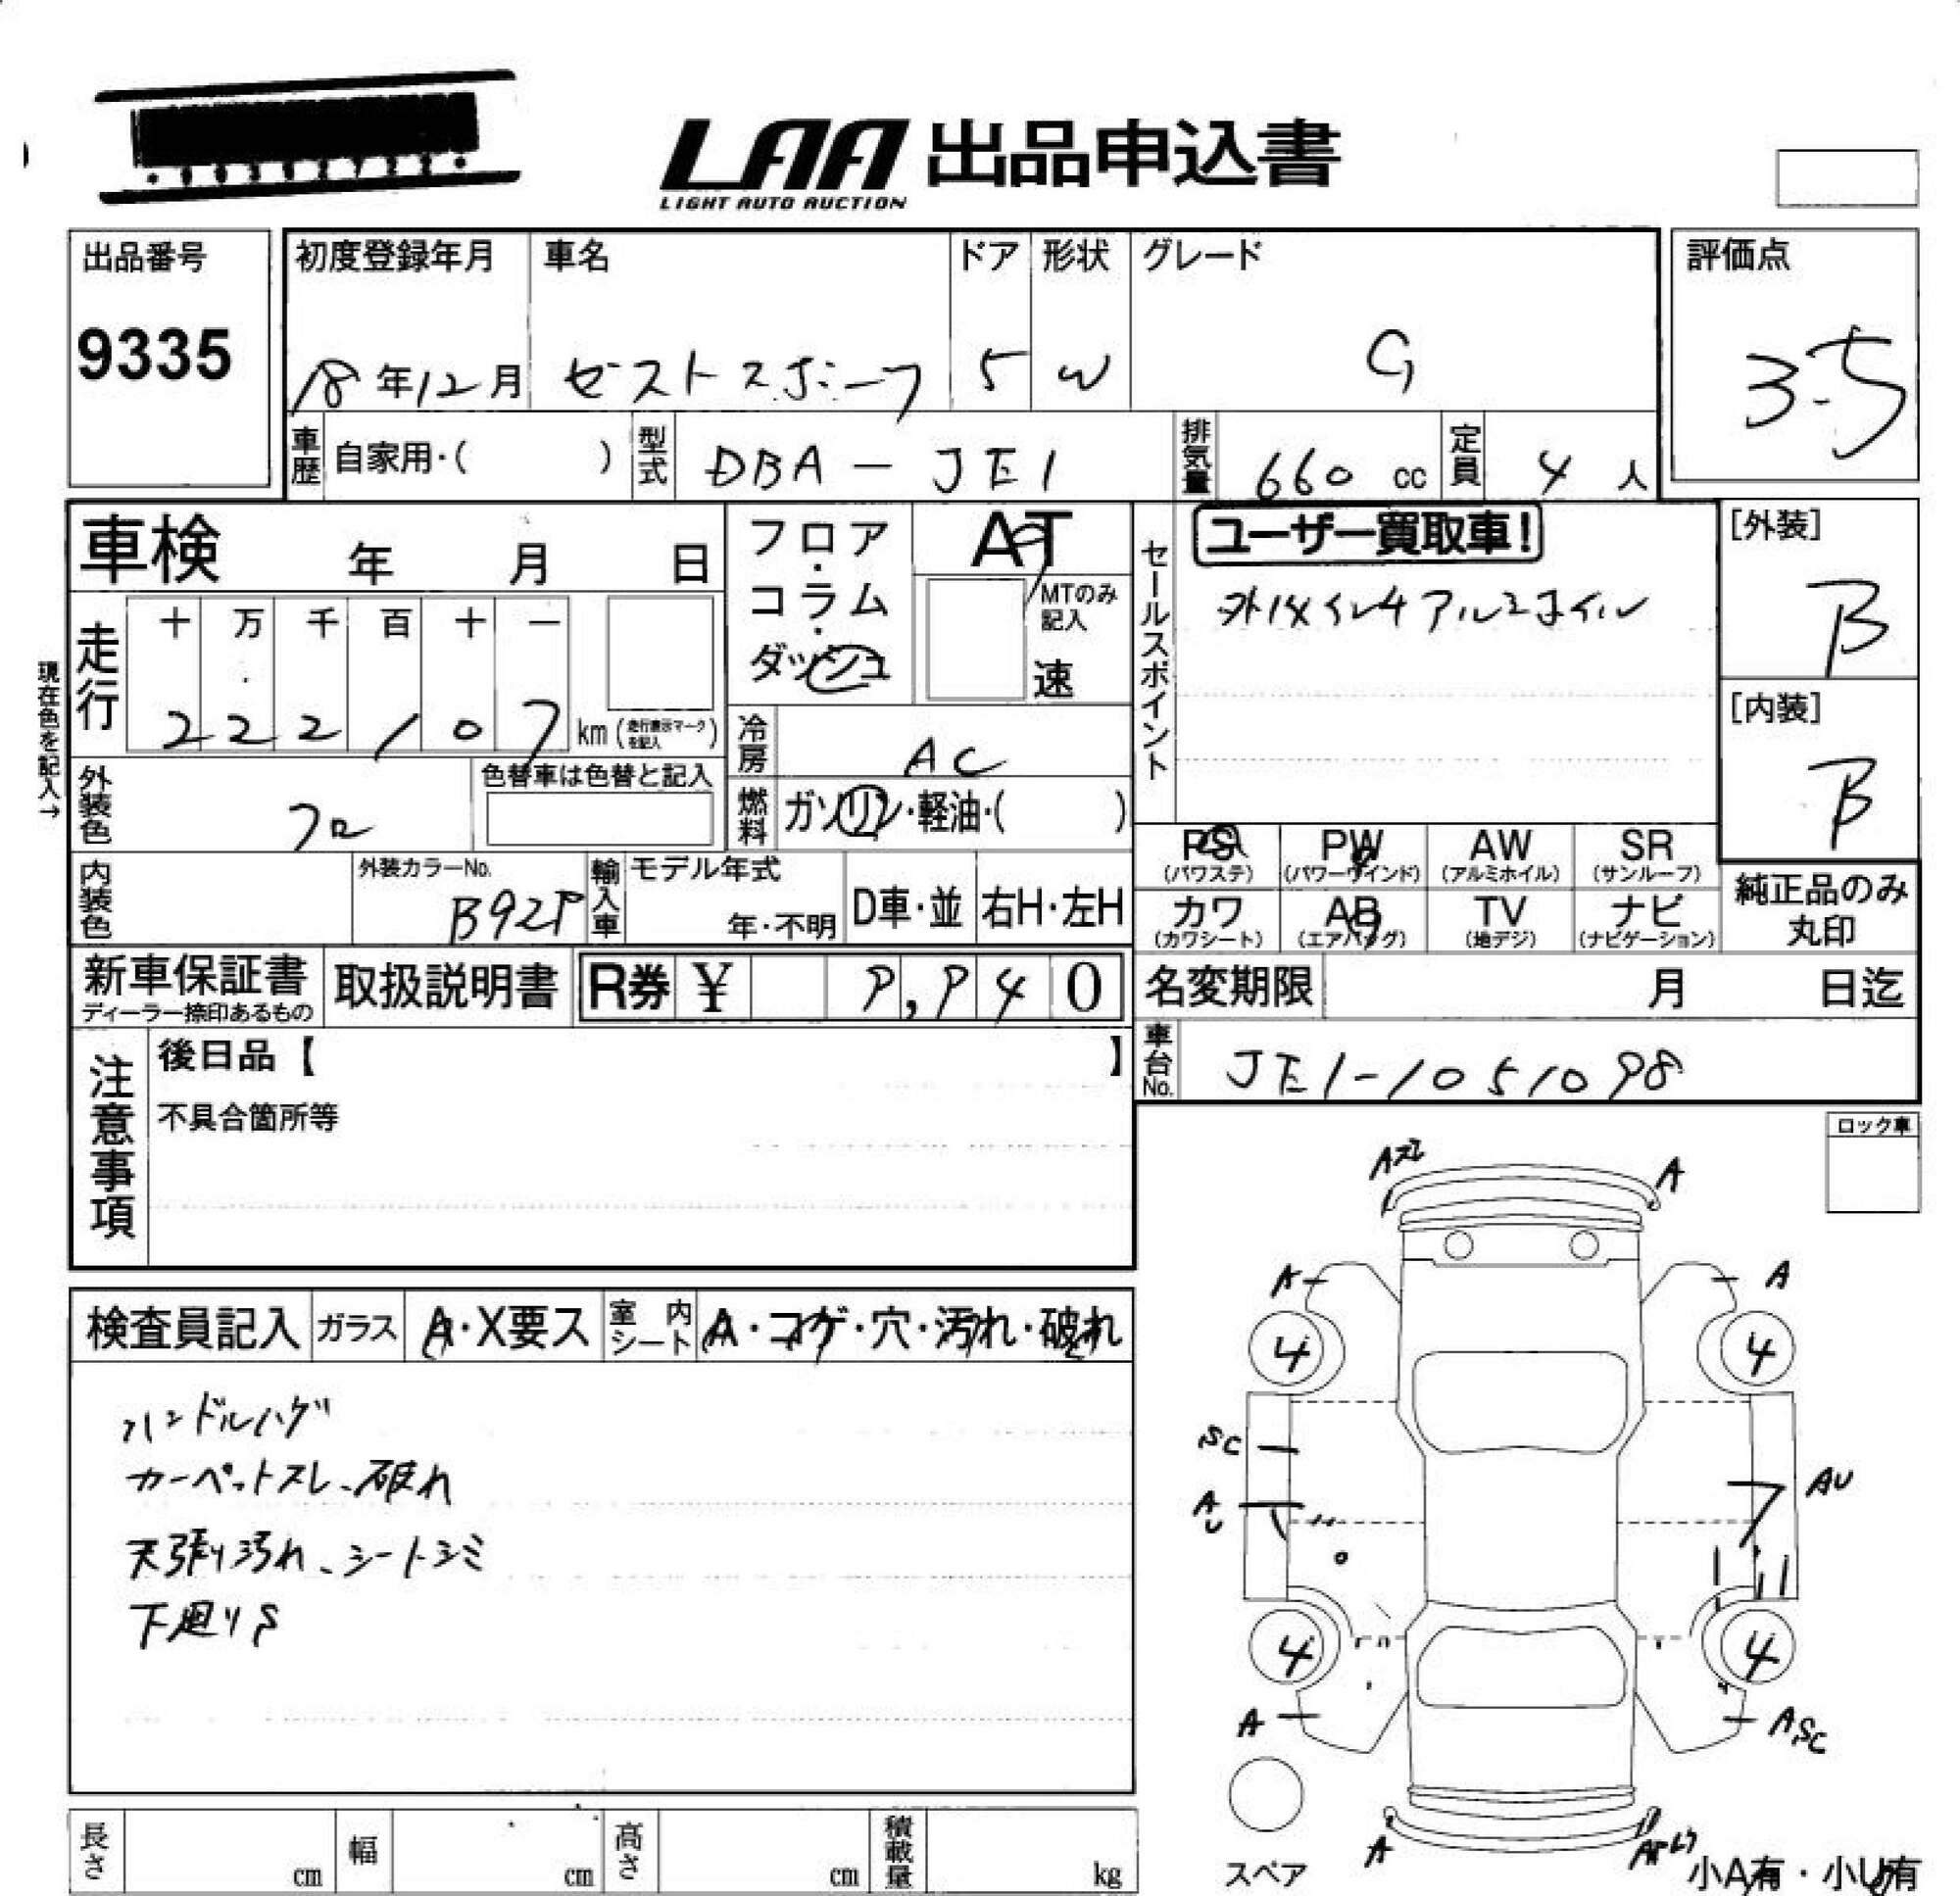 LAA 出品申込書
LIGHT AUTO AUCTION
出品番号
9335
初度登録年月 車名 ドア 形状 グレード
18年12月 ゼストスポーツ 5 W G
評価点
3.5
車歴 自家用・( ) 型式 DBA-JE1 排気量 660 cc 定員 4 人
車検 年 月 日
フロア・コラム・ダッシュ
AT
MTのみ記入
速
セールスポイント
ユーザー買取車!
外14インチアルミホイル
[外装]
B
[内装]
B
現在色を記入→
走行 十 万 千 百 十 一
222107 km (走行表示マークを記入)
冷房 AC
燃料 ガソリン・軽油・( )
外装色 クロ
色替車は色替と記入
内装色
外装カラーNo.
B92P
輸入車 モデル年式
年・不明 D車・並 右H・左H
PS (パワステ) PW (パワーウインド) AW (アルミホイル) SR (サンルーフ)
カワ (カワシート) AB (エアバッグ) TV (地デジ) ナビ (ナビゲーション)
純正品のみ
丸印
新車保証書
ディーラー捺印あるもの
取扱説明書 R券 ¥ 9,940
名変期限 月 日迄
車台No. JE1-1051098
注意事項
後日品【 】
不具合箇所等
ロック車
検査員記入 ガラス A・X要ス 室内シート A・コゲ・穴・汚れ・破れ
ハンドルハゲ
カーペットスレ、破れ
天張り汚れ、シートシミ
下廻りS
Aスレ A
A A
4 4
SC
AU AU
4 4
A ASC
A
スペア
小A有・小U有
長さ cm 幅 cm 高さ cm 積載量 kg